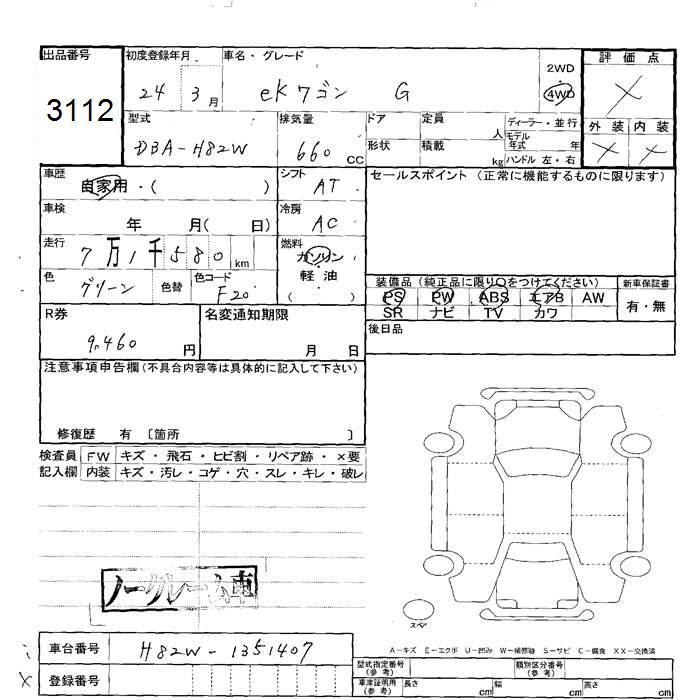 出品番号
3112
初度登録年月
24 3月
車名・グレード
eKワゴン G
2WD
4WD
評価点
×
外装 内装
× ×
型式
DBA-H82W
排気量
660 CC
ドア
形状
定員 人
積載 kg
ディーラー・並行
モデル年式 年
ハンドル 左・右
車歴
自家用・( )
シフト AT
セールスポイント(正常に機能するものに限ります)
車検
年 月( 日)
冷房 AC
走行
7万1千580km
燃料
ガソリン
軽油
( )
色
グリーン
色替
色コード
F20
装備品(純正品に限り○をつけてください)
PS PW ABS エアB AW
SR ナビ TV カワ
新車保証書
有・無
R券
9,460円
名変通知期限
月 日
後日品
注意事項申告欄(不具合内容等は具体的に記入して下さい)
修復歴 有 〔箇所 〕
検査員記入欄
FW キズ・飛石・ヒビ割・リペア跡・×要
内装 キズ・汚レ・コゲ・穴・スレ・キレ・破レ
ノークレーム車
スペア
A-キズ E-エクボ U-凹み W-補修跡 S-サビ C-腐食 XX-交換済
車台番号 H82W-1351407
登録番号
×
型式指定番号(参考)
類別区分番号(参考)
車庫証明用(参考)
長さ cm 幅 cm 高さ cm